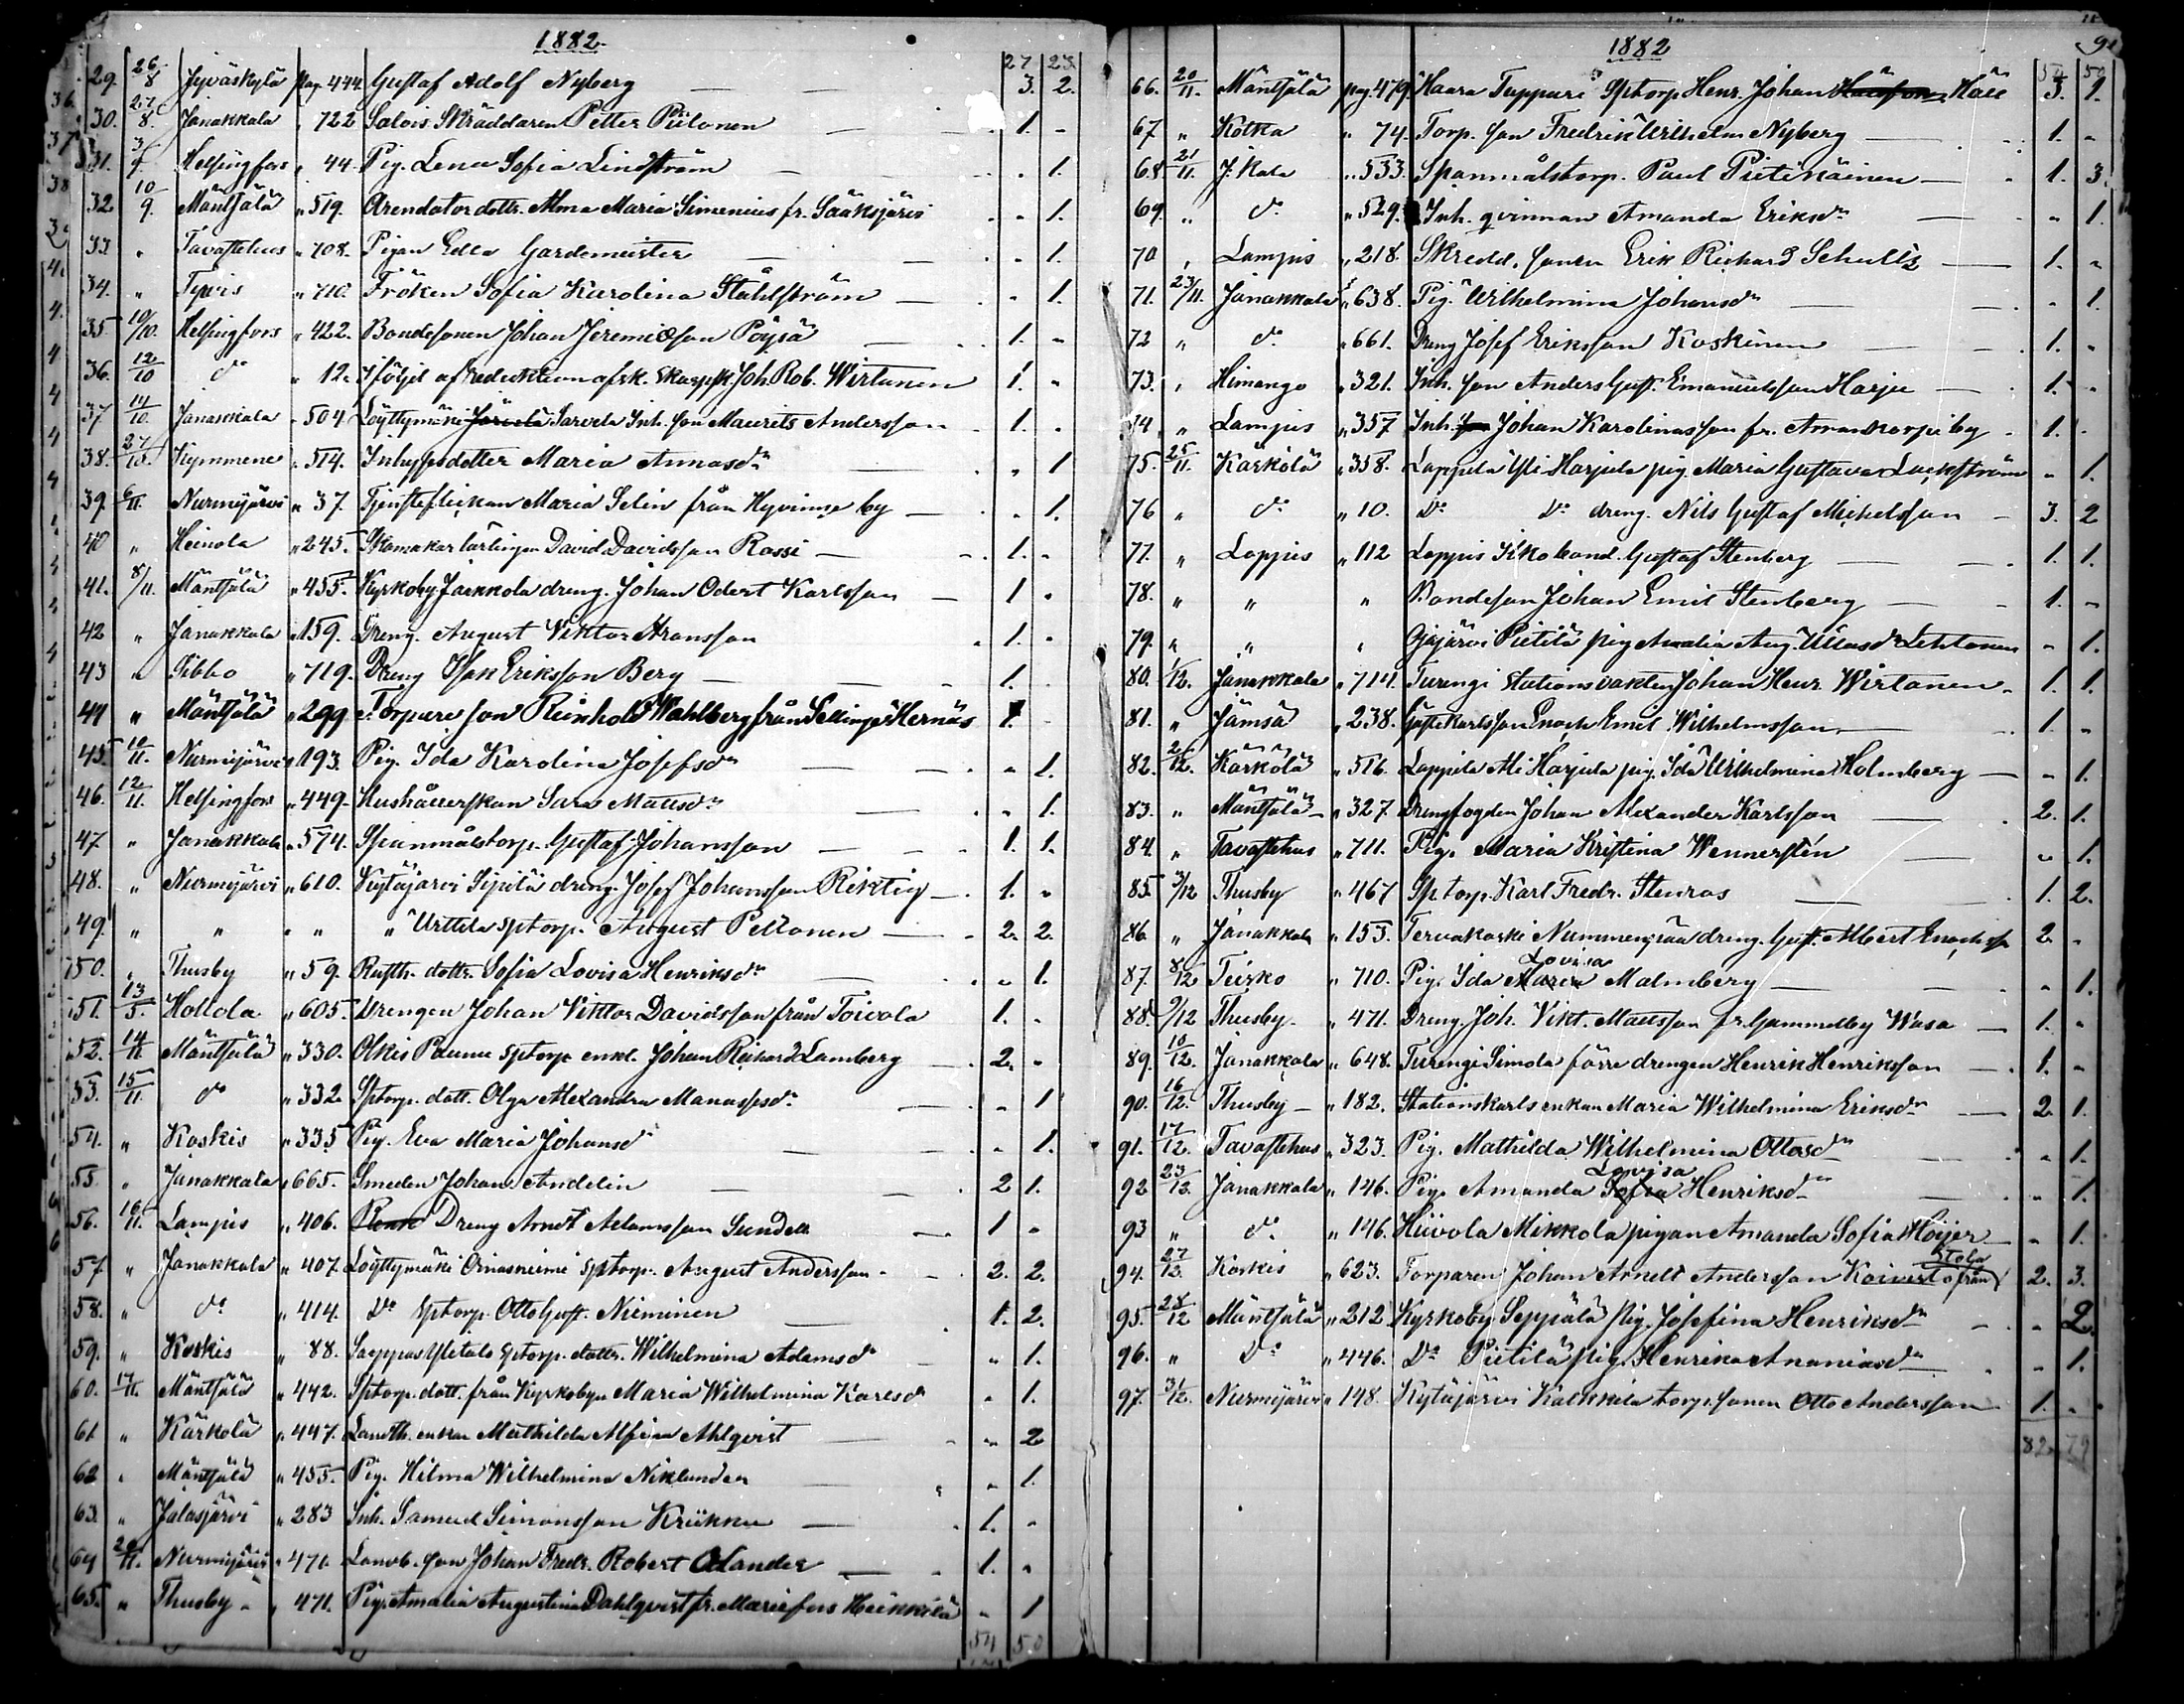 1882
27 23
29. 26/8 Jyväskylä pag. 444. Gustaf Adolf Nyberg — 3. 2.
30. 27/8. Janakkala " 722 Salois Skräddaren Petter Piilonen — 1. -
31. 3/9. Helsingfors " 44. Pig. Lena Sofia Lindström — - 1.
32. 10/9. Mäntsälä " 519. Arendator dottr. Alma Maria Simenius fr. Sääksjärvi - 1.
33. " Tavastehus " 708. Pigan Edla Gardemeister — - 1.
34. " Tyrvis " 710. Fröken Sofia Karolina Ståhlström — - 1.
35 10/10. Helsingfors " 422. Bondesonen Johan Jeremiæson Pöysä — 1. -
36. 12/10 do " 12. Joh. Rob. Wirtanen 1. -
37. 14/10. Janakkala " 504. Löyttymäki Sarvela Inh. son Maurits Andersson 1. -
38. 27/10. Kymmene " 514. Inhysesdotter Maria Annasdr — - 1
39. 6/11. Nurmijärvi " 37. Tjensteflickan Maria Selin från Hyvinge by — - 1.
40 " Heinola " 245. Skomakar lärlingen David Davidsson Rossi — 1. -
41. 8/11. Mäntsälä " 455. Kyrkoby Jaakkola dreng. Johan Odert Karlsson — 1 -
42 " Janakkala " 159. Dreng. August Viktor Aronsson 1. -
43 " Sibbo " 719. Dreng Isak Eriksson Berg — 1.
44 " Mäntsälä " 299 Torpare son Reinhold Wahlberg från Sellinge Hernäs 1. -
45. 10/11. Nurmijärvi " 193. Pig. Ida Karolina Josefsdr — - 1.
46. 12/11. Helsingfors " 449. Hushållerskan Sara Mattsdr — - 1.
47 " Janakkala " 574. Spanmålstorp. Gustaf Johansson — 1. 1.
48. " Nurmijärvi " 610. Kytäjärvi Sipilä dreng. Josef Johansson Riktig — 1. -
49. " " " " " Urttila sptorp. August Peltonen — 2. 2.
50. " Thusby " 59. Rusth. dottr. Sofia Lovisa Henriksdr — - 1.
51. 13/5. Hollola " 605. Drengen Johan Viktor Davidsson från Toivola 1. -
52. 14/11 Mäntsälä " 330. Olkis Paunu sptorp enkl. Johan Richard Lamberg 2. -
53. 15/11. do " 332. Sptorp. dott. Olga Alexandra Manassedr — - 1
54. " Koskis " 335 Pig. Eva Maria Johansdr — - 1.
55 " Janakkala " 665. Smeden Johan Andelin — 2 1.
56. 16/11. Lampis " 406. Dreng Arndt Adamsson Sundell — 1 -
57 " Janakkala " 407. Löyttymäki Orinasniemi sptorp. August Andersson 2. 2.
58. " do " 414. Do sptorp. Otto Gust. Nieminen — 1. 2.
59. " Koskis " 88. Sarppas Ylitalo sptorp. dottr. Wilhelmina Adamsdr - 1.
60. 17/11. Mäntsälä " 442. Sptorp. dott. från Kyrkobyn Maria Wilhelmina Karlsdr - 1.
61 " Kärkölä " 447. Landth. enkan Mathilda Alfina Ahlqvist — - 2
62 " Mäntsälä " 455. Pig. Hilma Wilhelmina Niklander - 1.
63. " Jalasjärvi " 283 Inh. Samuel Simonsson Kriikku — 1. -
64 20/11. Nurmijärvi " 471. Landb. son Johan Fredr. Robert Olander — 1. -
65. " Thusby " 471. Pig. Amalia Augustina Dahlqvist fr. Mariefors Heikkilä - 1
54 50
1882
91
54 50
66. 20/11. Mäntsälä pag. 479. Haara Tuppuri Sptorp Henr. Johan Häll 3. 1.
67 " Kotka " 74. Torp. son Fredrik Wilhelm Nyberg — 1. -
68 21/11. J:kala " 533. Spanmålstorp. Paul Pietikäinen — 1. 3.
69. " do " 529. Inh. qvinnan Amanda Eriksdr - 1.
70 " Lampis " 218. Skredd. sonen Erik Richard Schultz — 1. -
71. 23/11. Janakkala " 638. Pig. Wilhelmina Johansdr — - 1.
72 " do " 661. Dreng Josef Eriksson Koskinen — 1. -
73. " Himango " 321. Inh. son Anders Gust. Emanuelsson Harju — 1. -
74 " Lampis " 357 Inh. Johan Karolinasson fr. Arrankorpi by - 1. -
75. 25/11. Kärkölä " 358. Lappila Yli-Harjula pig. Maria Gustava Lackström - 1.
76 " do " 10. Do Do dreng. Nils Gustaf Michelsson - 3. 2
77. " Loppis " 112 Loppis bond. Gustaf Stenberg — 1. 1.
78. " " " Bondeson Johan Emil Stenberg — 1. -
79. " " " Ojajärvi Pietilä pig Amalia Aug. Ullasdr Lehtonen - 1.
80. 1/12. Janakkala " 714. Turengi stationsvakten Johan Henr. Wirtanen 1. 1.
81. " Jämsä " 238. Enoch Emil Wilhelmsson — 1. -
82. 2/12. Kärkölä " 516. Lappila Ali Harjula pig. Ida Wilhelmina Holmberg — - 1.
83. " Mäntsälä " 327. Drengfogden Johan Alexander Karlsson — 2. 1.
84. " Tavastehus " 711. Pig. Maria Kristina Wennersten — - 1.
85. 3/12 Thusby " 467 Sptorp. Karl Fredr. Stenroos — 1. 2.
86 " Janakkala " 153. Tervakoski Nummenpää dreng. Gust. Albert Enochsson 2. -
87. 8/12 Teisko " 710. Pig. Ida Lovisa Malmberg — - 1.
88. 9/12 Thusby " 471. Dreng Joh. Vikt. Mattsson fr. Gammelby Wasa — 1. -
89. 10/12. Janakkala " 648. Turengi Simola förre drengen Henrik Henriksson — 1. -
90. 16/12. Thusby " 182. Stationskarls enkan Maria Wilhelmina Eriksdr — 2. 1.
91. 17/12. Tavastehus " 323. Pig. Mathilda Wilhelmina Ottosdr — - 1.
92 23/12. Janakkala " 146. Pig. Amanda Lovisa Henriksdr — - 1.
93 " do " 146. Hiivola Mikkola pigan Amanda Sofia Höijer - 1.
94. 27/12. Koskis " 623. Torparen Johan Arnelt Andersson Koivisto från Etola 2. 3.
95. 28/12 Mäntsälä " 212 Kyrkoby Seppälä pig. Josefina Henriksdr - 2.
96. " Do " 446. Do Pietilä pig. Henrika Ananiasdr - 1.
97. 31/12. Nurmijärvi " 148. Kytäjärvi Kalkkila torp. sonen Otto Andersson 1. -
82 79